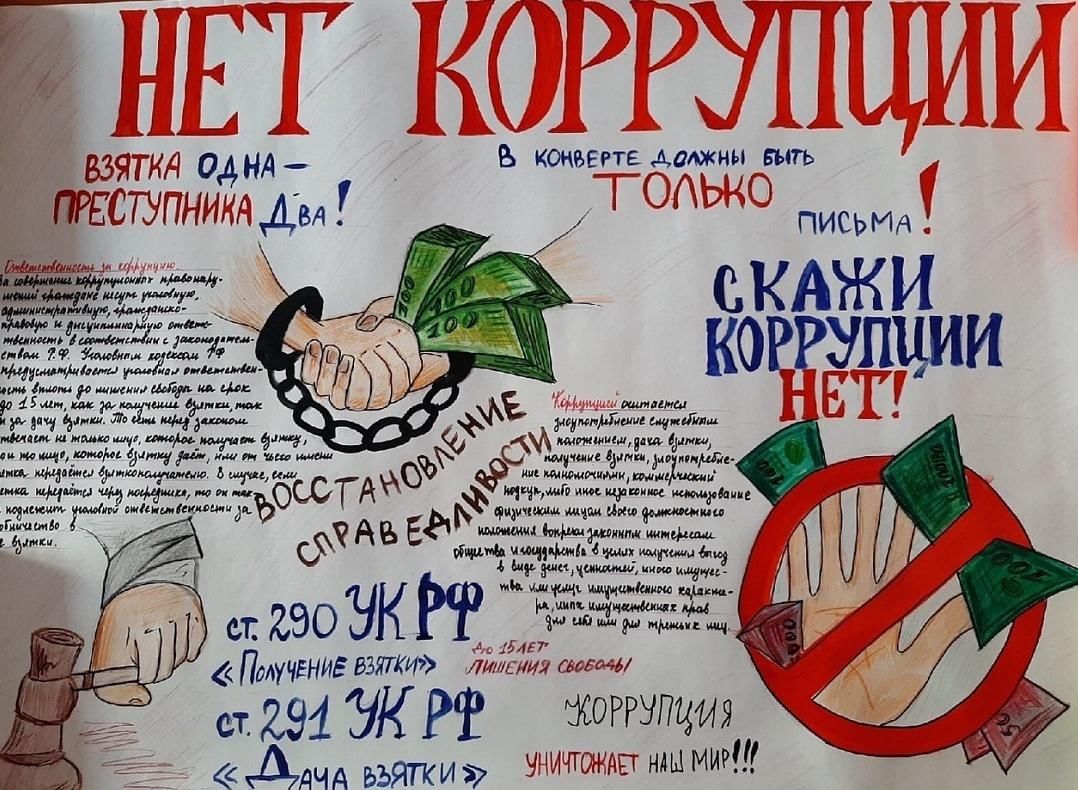 НЕТ КОРРУПЦИИ
ВЗЯТКА ОДНА –
ПРЕСТУПНИКА ДВА!
В КОНВЕРТЕ ДОЛЖНЫ БЫТЬ
ТОЛЬКО
ПИСЬМА!
Ответственность за коррупцию.
За совершение коррупционных правонару-
шений граждане несут уголовную,
административную, гражданско-
правовую и дисциплинарную ответс-
твенность в соответствии с законодатель-
ством Р.Ф. Уголовным кодексом РФ
предусматривается уголовная ответствен-
ость вплоть до лишения свободы на срок
до 15 лет, как за получение взятки, так
и за дачу взятки. То есть перед законом
твечает не только лицо, которое получает взятку,
но и то лицо, которое взятку даёт, или от чьего имени
взятка передаётся взяткополучателю. В случае, если
взятка передаётся через посредника, то он так
подлежит уголовной ответственности за
обничество в
е взятки.
100
100
СКАЖИ
КОРРУПЦИИ
НЕТ!
ВОССТАНОВЛЕНИЕ
СПРАВЕДЛИВОСТИ
Коррупцией считается
злоупотребление служебным
положением, дача взятки,
получение взятки, злоупотребле-
ние полномочиями, коммерческий
подкуп, либо иное незаконное использование
физическим лицом своего должностного
положения вопреки законным интересам
общества и государства в целях получения выгод
в виде денег, ценностей, иного имущес-
тва или услуг имущественного характе-
ра, иных имущественных прав
для себя или для третьих лиц.
100
1000
ст. 290 УК РФ
«Получение взятки»
до 15 лет
лишения свободы
ст. 291 УК РФ
«Дача взятки»
КОРРУПЦИЯ
УНИЧТОЖАЕТ НАШ МИР!!!